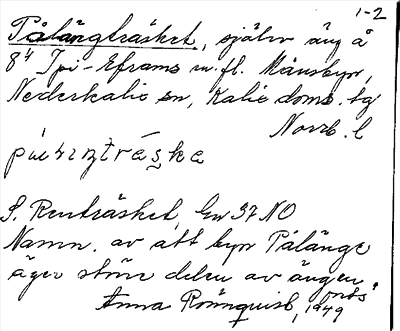 1-2
Pålängträsket, självr äng å
8⁴ Ipi-Eframs m. fl. Månsbyn,
Nederkalix sn, Kalix doms. tg
Norrb. l
S. Renträsket, Gw 37 NO
Namn. av att byn Pålänge
äger större delen av ängen.
Anna Rönnquist, 1949